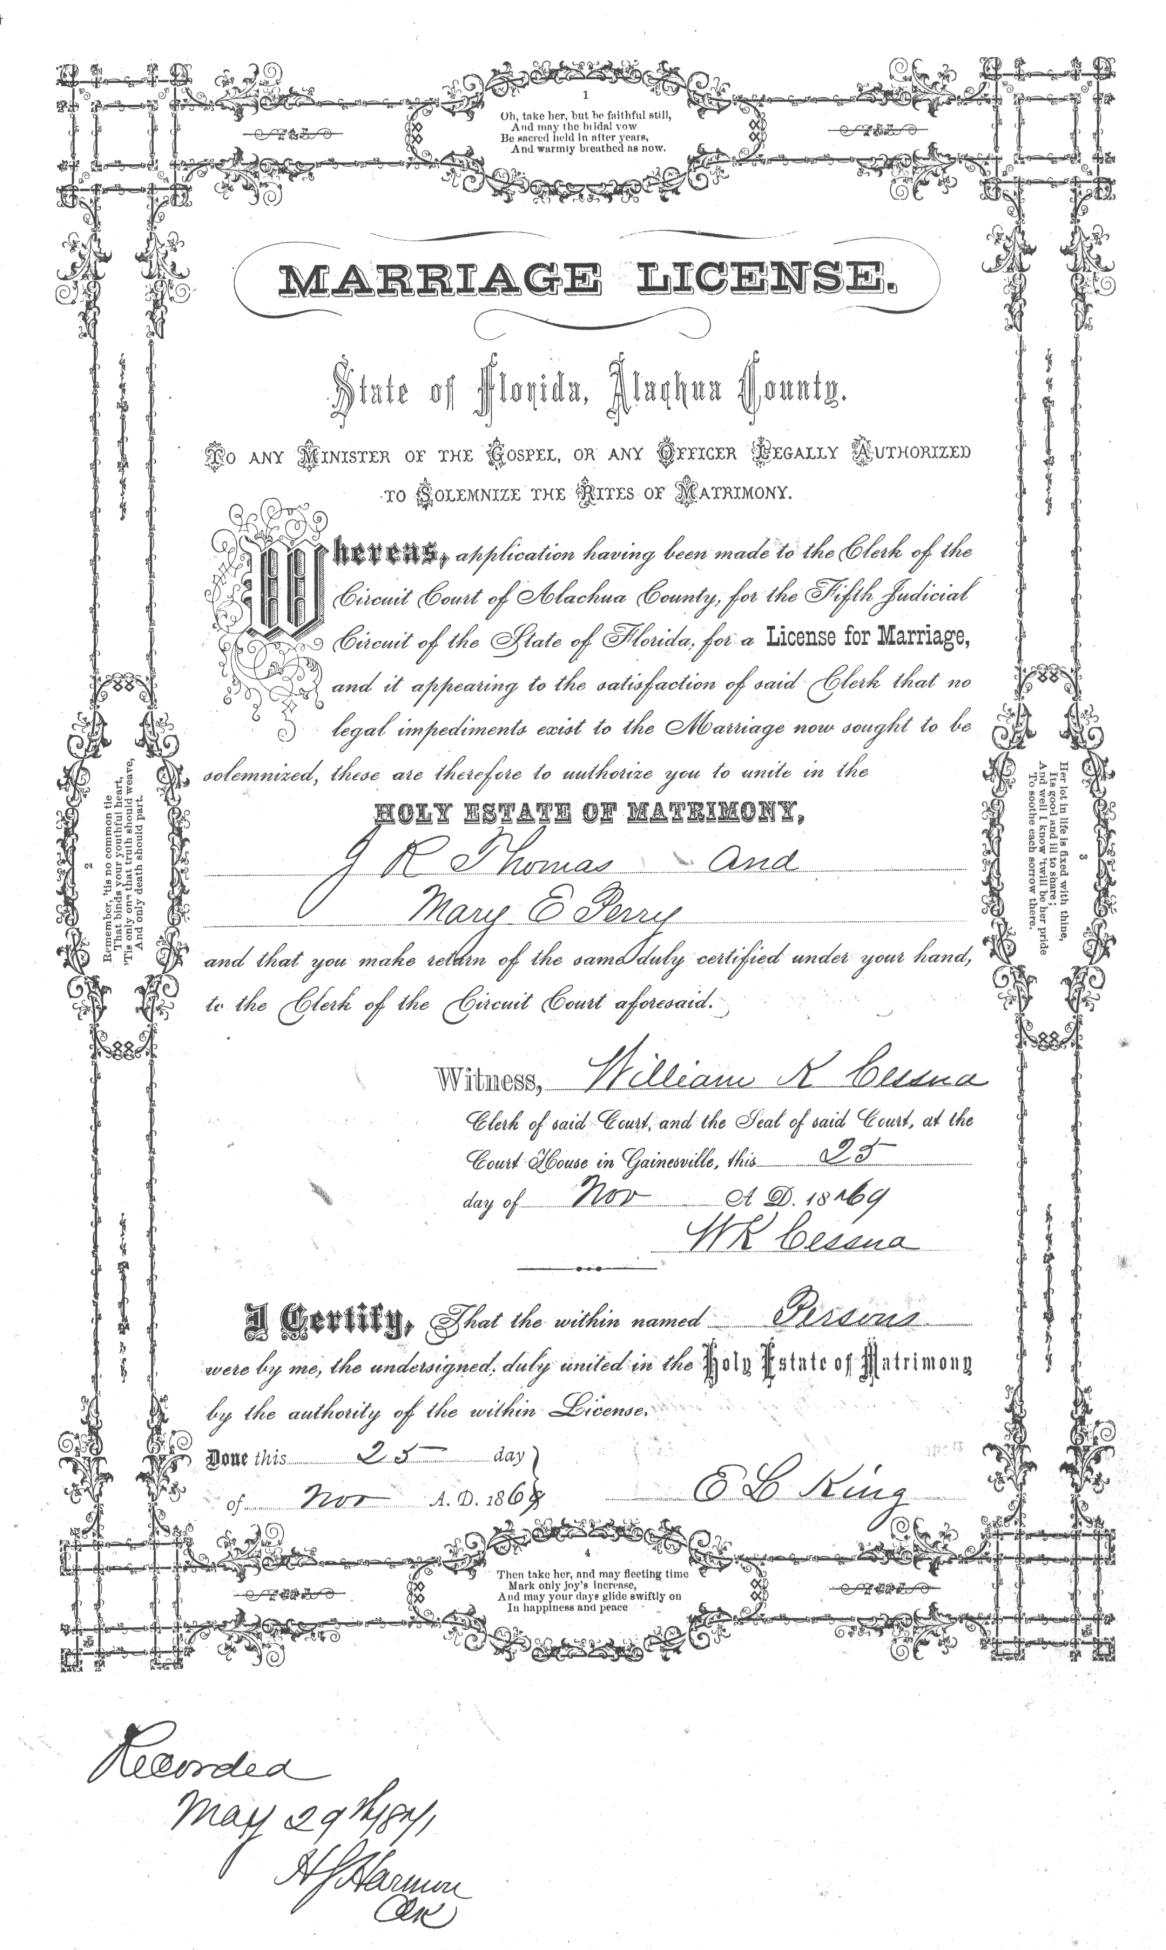 1
Oh, take her, but be faithful still,
And may the bridal vow
Be sacred held in after years,
And warmly breathed as now.
MARRIAGE LICENSE.
State of Florida, Alachua County.
TO ANY MINISTER OF THE GOSPEL, OR ANY OFFICER LEGALLY AUTHORIZED
TO SOLEMNIZE THE RITES OF MATRIMONY.
Whereas, application having been made to the Clerk of the
Circuit Court of Alachua County, for the Fifth Judicial
Circuit of the State of Florida, for a License for Marriage,
and it appearing to the satisfaction of said Clerk that no
legal impediments exist to the Marriage now sought to be
solemnized, these are therefore to authorize you to unite in the
HOLY ESTATE OF MATRIMONY,
J R Thomas and
Mary E Perry
and that you make return of the same duly certified under your hand,
to the Clerk of the Circuit Court aforesaid.
Witness, William K Cessna
Clerk of said Court, and the Seal of said Court, at the
Court House in Gainesville, this 25
day of Nov A. D. 1869
WK Cessna
I Certify, That the within named Persons
were by me, the undersigned, duly united in the Holy Estate of Matrimony
by the authority of the within License.
Done this 25 day
of Nov A. D. 1869
E L King
2
Remember, 'tis no common tie
That binds your youthful heart,
'Tis only one that truth should weave,
And only death should part.
3
Her lot in life is fixed with thine,
Its good and ill to share;
And well I know 'twill be her pride
To soothe each sorrow there.
4
Then take her, and may fleeting time
Mark only joy's increase,
And may your days glide swiftly on
In happiness and peace
Recorded
May 29th 1871
Harmon
Clk